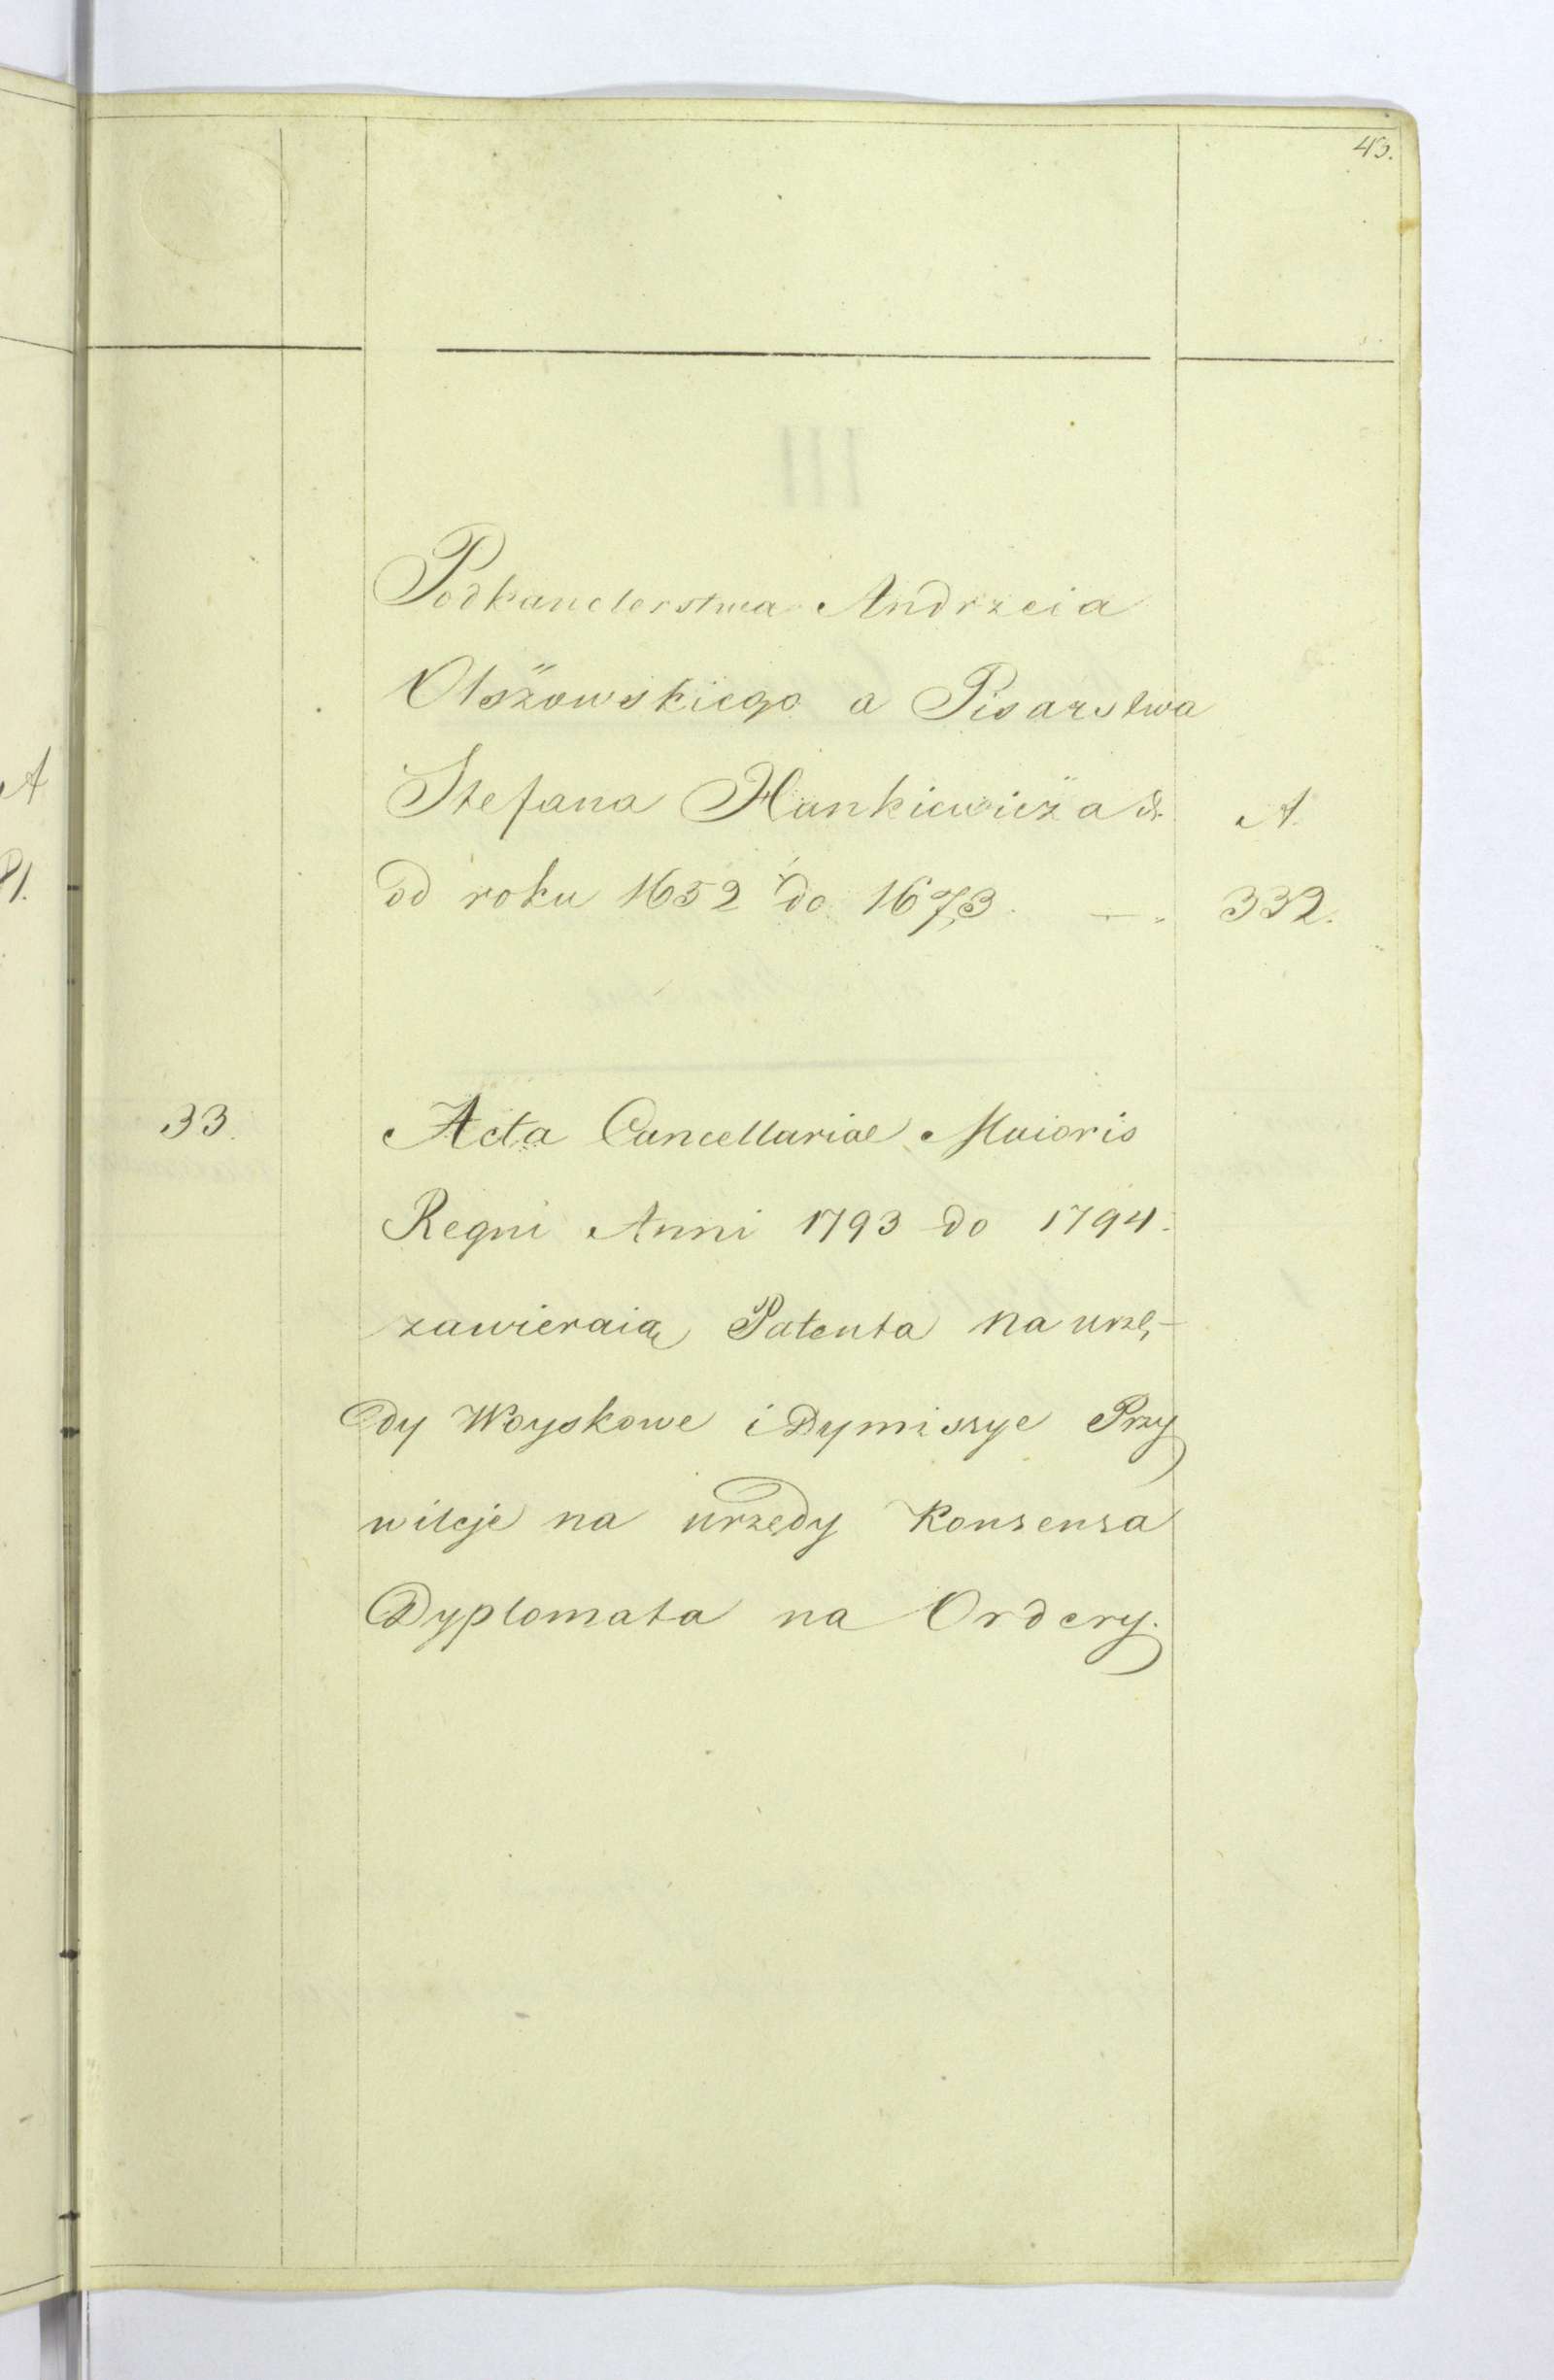 43.
Podkanclerstwa Andrzeia
Olszowskiego a Pisarstwa
Stefana Hankiewicza
A.
od roku 1652 do 1673. — . 332.
33. Acta Cancellariae Maioris
Regni Anni 1793 do 1794.
zawieraią Patenta na urzę-
dy Woyskowe i Dymissye Przy
wileje na urzędy Konsensa
Dyplomata na Ordery.
A